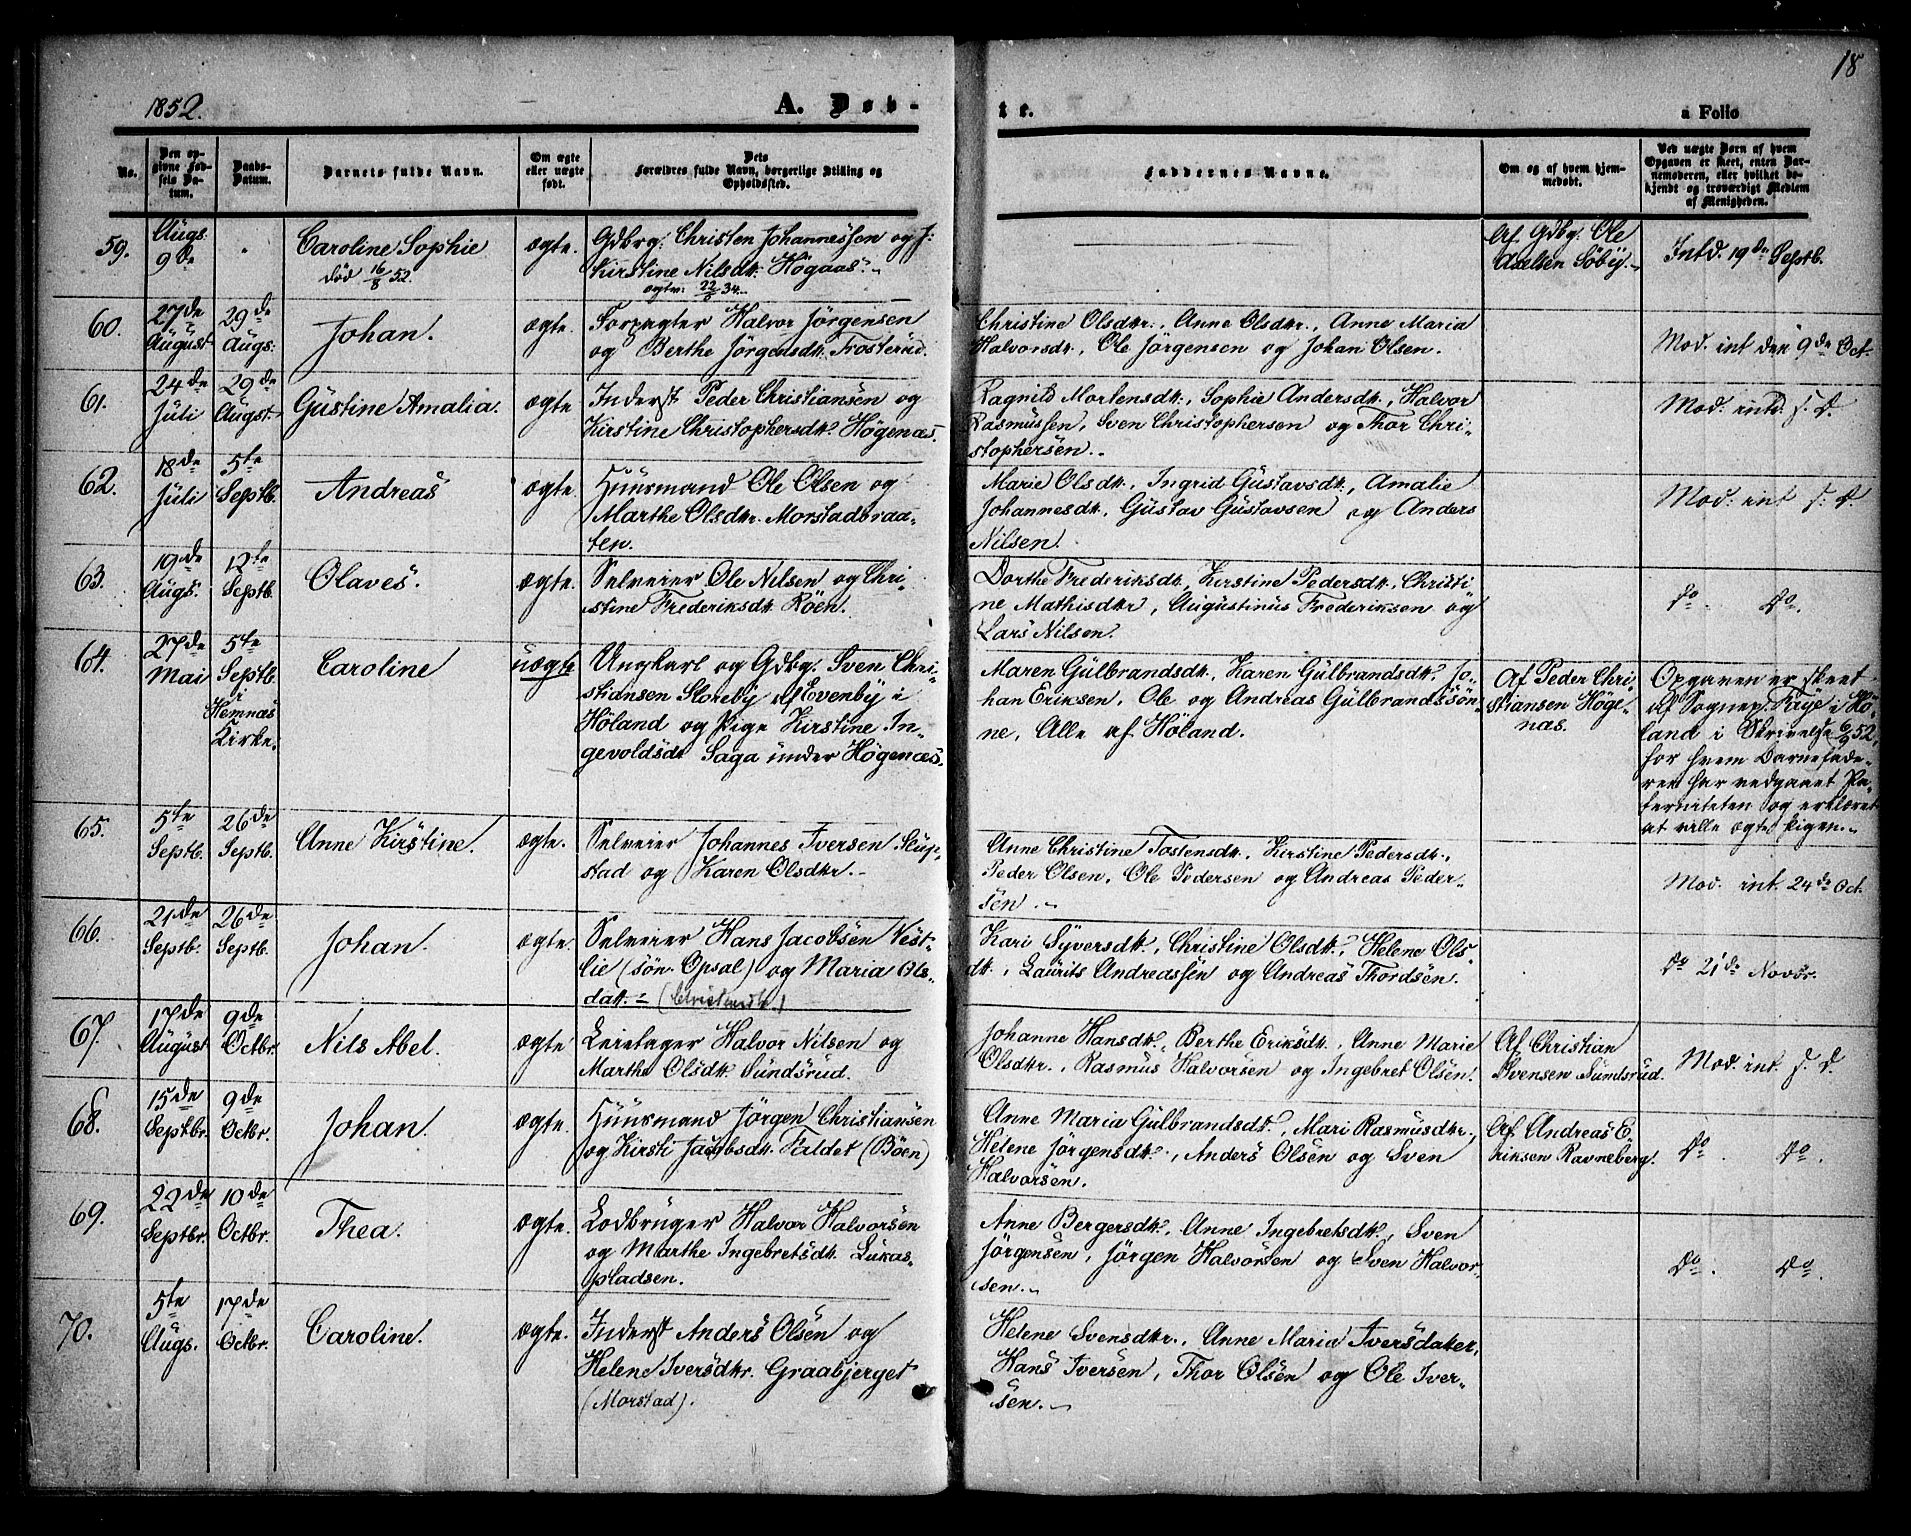 1852.
A. Døb-
te.
a Folio
18
No.
Den op-
givne Fød-
sels Da-
tum.
Daabs-
Datum.
Barnets fulde Navn.
Om ægte
eller uægte
født.
Dets
Forældres fulde Navn, borgerlige Stilling og
Opholdssted.
Faddernes Navne.
Om og af hvem hjem-
medøbt.
Ved uægte Børn af hvem
Opgaven er skeet, enten Bar-
nemoderen, eller hvilket be-
kjendt og troværdigt Medlem
af Menigheden.
59.
Augs.
9de
Caroline Sophie
død 16/8 52.
ægte.
Gdbrg. Christen Johannesen og J:
Kirstine Nilsdtr. Högaas.
ægtev: 22/5 34.
Af Gdbg. Ole
Axelsen Søby.
Intd. 19de Septb.
60.
27de
August
29de
Augs.
Johan.
ægte.
Forpagter Halvor Jörgensen
og Berthe Jörgensdtr. Trosterud.
Christine Olsdtr., Anne Olsdtr., Anne Maria
Halvorsdtr., Ole Jörgensen og Johan Olsen.
Mod. int den 9de Oct.
61.
24de
Juli
29de
Augst.
Gustine Amalia.
ægte
Inderst Peder Christiansen og
Kirstine Christophersdtr. Högenæs.
Ragnild Mortensdtr., Sophie Andersdtr., Halvor
Rasmussen, Sven Christophersen og Thor Chri-
stophersen.
Mod. intd. s. D.
62.
18de
Juli
5te
Septb.
Andreas
ægte.
Huusmand Ole Olsen og
Marthe Olsdtr. Morstadbraa-
ten.
Marie Olsdtr., Ingrid Gustavsdtr., Amalie
Johannesdtr., Gustav Gustavsen og Anders
Nilsen.
Mod. int s. D.
63.
19de
Augs.
12te
Septb.
Olaves.
ægte.
Selveier Ole Nilsen og Chri-
stine Frederiksdtr. Röen.
Dorthe Frederiksdtr., Kirstine Pedersdtr., Christi-
ne Mathisdtr, Augustinus Frederiksen og
Lars Nilsen.
do. Do.
64.
27de
Mai
5te
Septb.
i
Hemnæs
Kirke.
Caroline
uægte
Ungkarl og Gdbg. Sven Chri-
stiansen Storeby af Evenby i
Höland og Pige Kirstine In-
gevoldsdtr Saga under Högenæs.
Maren Gulbrandsdtr., Karen Gulbrandsdtr. Jo-
han Eriksen, Ole og Andreas Gulbrandssön-
ne, Alle af Höland.
Af Peder Chri-
stiansen Höge-
næs.
Opgaven er skeet
af Sognep. Faye i Hö-
land i Skrivelse 6/9 52,
for hvem Barnefade-
ren har vedgaaet Pa-
terniteten og erklæret
at ville ægte Pigen.
65.
5te
Septb.
26de
Septb.
Anne Kirstine.
ægte.
Selveier Johannes Iversen
stad og Karen Olsdtr.
Anne Christine Tostensdtr., Kirstine Pedersdtr.,
Peder Olsen, Ole Pedersen og Andreas Peder-
sen.
Mod. int. 24de Oct.
66.
21de
Septb.
26de
Septb.
Johan.
ægte.
Selveier Hans Jacobsen Vest-
lie (søn. Opsal) og Maria Ols-
datr. (Christensdtr.)
Kari Syversdtr., Christine Olsdtr., Helene Ols-
dtr., Laurits Andreassen og Andreas Thordsen.
Do 21de Novbr.
67.
17de
August
9de
Octbr.
Nils Abel.
ægte
Leietager Halvor Nilsen og
Marthe Olsdtr. Sundsrud.
Johanne Hansdtr., Berthe Eriksdtr., Anne Marie
Olsdtr., Rasmus Halvorsen og Ingebret Olsen.
Af Christian
Svensen Sundsrud.
Mod. int. s. d.
68.
15de
Septbr.
9de
Octbr.
Johan.
ægte.
Huusmand Jörgen Christiansen
og Kirsti Jacobsdtr. Faldet (Böen)
Anne Maria Gulbrandsdtr., Mari Rasmusdtr.,
Helene Jörgensdtr., Anders Olsen og Sven
Halvorsen.
Af Andreas E-
riksen Ravneberg.
Do. Do.
69.
22de
Septbr.
10de
Octbr.
Thea.
ægte.
Lodbruger Halvor Halvorsen
og Marthe Ingebretsdtr. Lukas-
pladsen.
Anne Bergersdtr., Anne Ingebretsdtr., Sven
Jörgensen, Jörgen Halvorsen og Sven Halvor-
sen.
Do. Do.
70.
5te
Augs.
17de
Octbr.
Caroline.
ægte.
Inderst Anders Olsen og
Helene Iversdtr. Graabjerget
(Morstad).
Helene Svensdtr., Anne Maria Iversdatter,
Hans Iversen, Thor Olsen og Ole Iver-
sen.